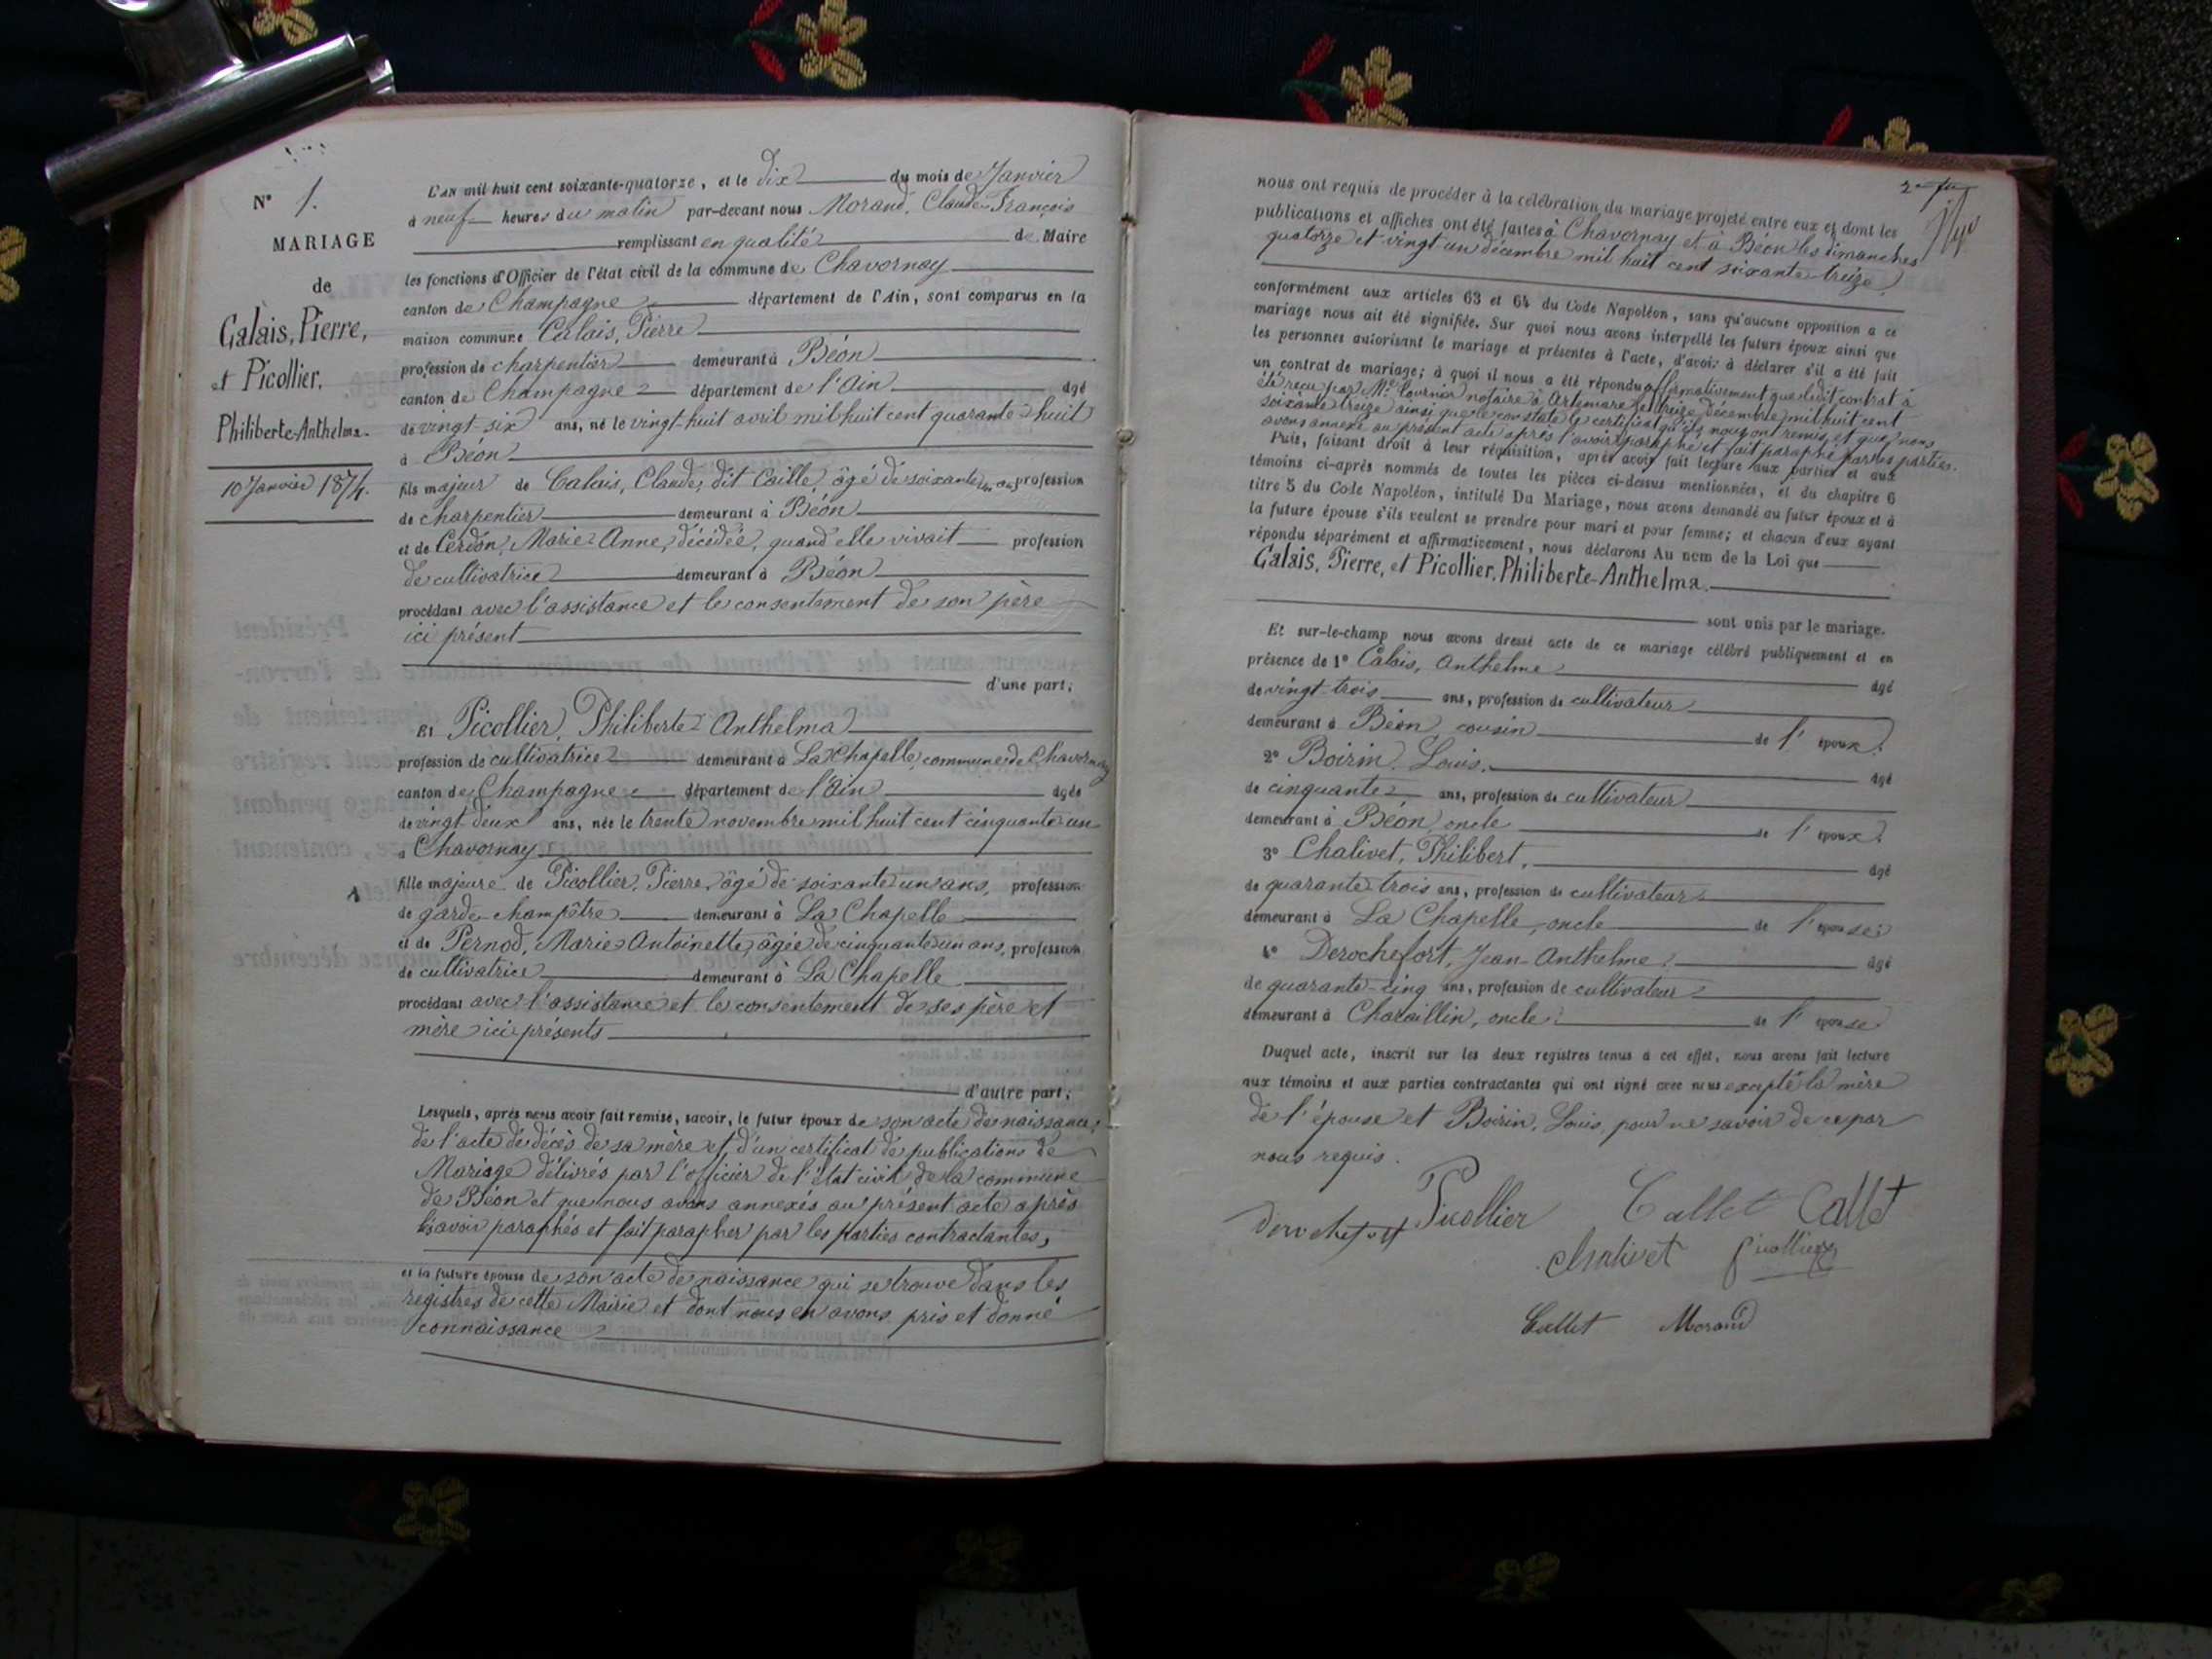 N° 1.
MARIAGE
de
Calais, Pierre,
et Picollier,
Philiberte-Anthelma.
10 Janvier 1874.
L'AN mil huit cent soixante-quatorze, et le dix du mois de Janvier
à neuf heures du matin par-devant nous Morand, Claude-François
remplissant en qualité de Maire
les fonctions d'Officier de l'état civil de la commune de Chavornay
canton de Champagne département de l'Ain, sont comparus en la
maison commune Calais, Pierre
profession de charpentier demeurant à Béon
canton de Champagne département de l'Ain âgé
de vingt-six ans, né le vingt-huit avril mil huit cent quarante-huit
à Béon
fils majeur de Calais, Claude, dit Caille, âgé de soixante un ans profession
de charpentier demeurant à Béon
et de Cerdon, Marie-Anne, décédée, quand elle vivait profession
de cultivatrice demeurant à Béon
procédant avec l'assistance et le consentement de son père
ici présent
d'une part;
Et Picollier, Philiberte-Anthelma
profession de cultivatrice demeurant à La Chapelle, commune de Chavornay
canton de Champagne département de l'Ain âgée
de vingt-deux ans, née le trente novembre mil huit cent cinquante-un
à Chavornay
fille majeure de Picollier, Pierre, âgé de soixante-un ans, profession
de garde-champêtre demeurant à La Chapelle
et de Pernod, Marie-Antoinette, âgée de cinquante-un ans, profession
de cultivatrice demeurant à La Chapelle
procédant avec l'assistance et le consentement de ses père et
mère ici présents
d'autre part;
Lesquels, après nous avoir fait remise, savoir, le futur époux de son acte de naissance,
de l'acte de décès de sa mère et d'un certificat de publications de
Mariage délivrés par l'officier de l'état civil de la commune
de Béon et que nous avons annexés au présent acte après
les avoir paraphés et fait parapher par les parties contractantes,
et la future épouse de son acte de naissance qui se trouve dans les
registres de cette Mairie et dont nous en avons pris et donné
connaissance
nous ont requis de procéder à la célébration du mariage projeté entre eux et dont les
publications et affiches ont été faites à Chavornay et à Béon les dimanches
quatorze et vingt-un décembre mil huit cent soixante-treize,
conformément aux articles 63 et 64 du Code Napoléon, sans qu'aucune opposition a ce
mariage nous ait été signifiée. Sur quoi nous avons interpellé les futurs époux ainsi que
les personnes autorisant le mariage et présentes à l'acte, d'avoir à déclarer s'il a été fait
un contrat de mariage; à quoi il nous a été répondu affirmativement que ledit contrat a
été reçu par Me Fournier notaire à Artemare le treize décembre mil huit cent
soixante-treize ainsi que le constate le certificat qu'ils nous ont remis et que nous
avons annexé au présent acte après l'avoir paraphé et fait parapher par les parties.
Puis, faisant droit à leur réquisition, après avoir fait lecture aux parties et aux
témoins ci-après nommés de toutes les pièces ci-dessus mentionnées, et du chapitre 6
titre 5 du Code Napoléon, intitulé Du Mariage, nous avons demandé au futur époux et à
la future épouse s'ils veulent se prendre pour mari et pour femme; et chacun d'eux ayant
répondu séparément et affirmativement, nous déclarons Au nom de la Loi que
Calais, Pierre, et Picollier, Philiberte-Anthelma.
sont unis par le mariage.
Et sur-le-champ nous avons dressé acte de ce mariage célébré publiquement et en
présence de 1° Calais, Anthelme âgé
de vingt-trois ans, profession de cultivateur
demeurant à Béon, cousin de l'époux;
2° Boirin, Louis, âgé
de cinquante ans, profession de cultivateur
demeurant à Béon, oncle de l'époux;
3° Chalivet, Philibert, âgé
de quarante-trois ans, profession de cultivateur
demeurant à La Chapelle, oncle de l'épouse;
4° Derochefort, Jean-Anthelme, âgé
de quarante-cinq ans, profession de cultivateur
demeurant à Charaillin, oncle de l'épouse
Duquel acte, inscrit sur les deux registres tenus à cet effet, nous avons fait lecture
aux témoins et aux parties contractantes qui ont signé avec nous excepté la mère
de l'épouse et Boirin, Louis, pour ne savoir de ce par
nous requis.
Derochefort Picollier Callet Callet
Chalivet Picollier
Callet Morand